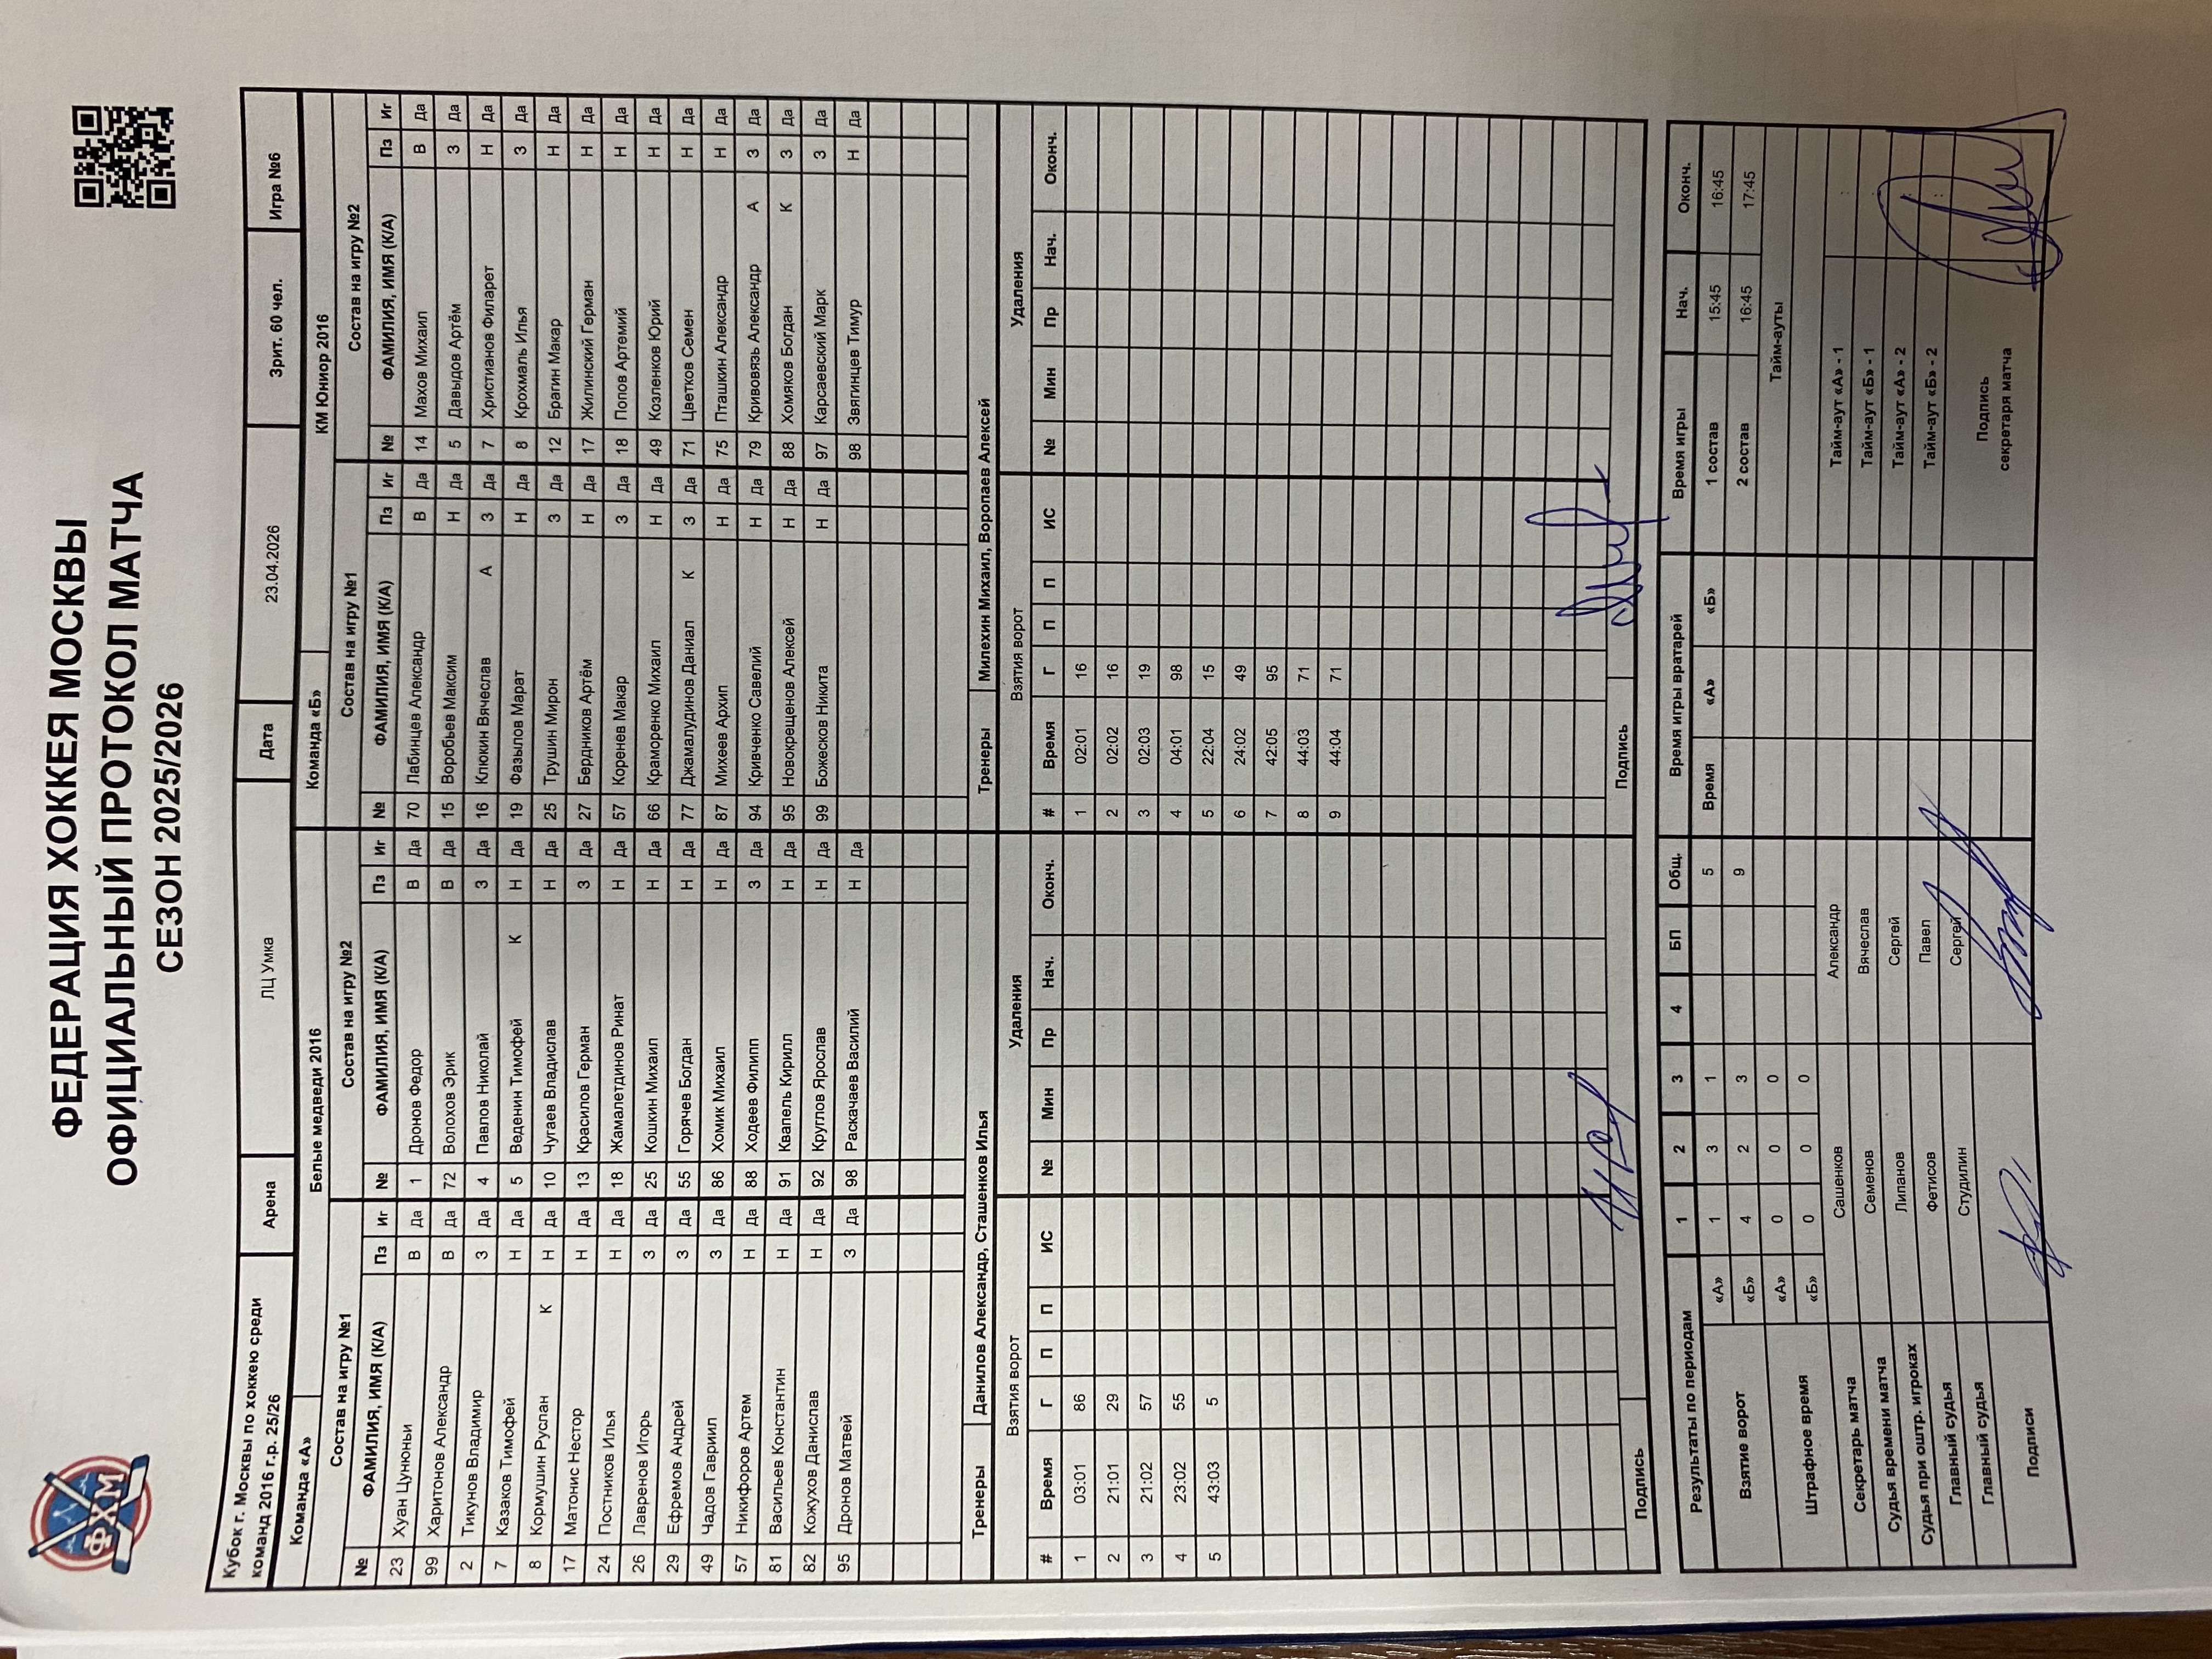 ФХМ
ФЕДЕРАЦИЯ ХОККЕЯ МОСКВЫ
ОФИЦИАЛЬНЫЙ ПРОТОКОЛ МАТЧА
СЕЗОН 2025/2026
Кубок г. Москвы по хоккею среди команд 2016 г.р. 25/26 Арена ЛЦ Умка Дата 23.04.2026 Зрит. 60 чел. Игра №6
Команда «А» Белые медведи 2016 Команда «Б» КМ Юниор 2016
Состав на игру №1 Состав на игру №2 Состав на игру №1 Состав на игру №2
№ ФАМИЛИЯ, ИМЯ (К/А) Пз Иг № ФАМИЛИЯ, ИМЯ (К/А) Пз Иг № ФАМИЛИЯ, ИМЯ (К/А) Пз Иг № ФАМИЛИЯ, ИМЯ (К/А) Пз Иг
23 Хуан Цунюньи В Да 1 Дронов Федор В Да 70 Лабинцев Александр В Да 14 Махов Михаил В Да
99 Харитонов Александр В Да 72 Волохов Эрик В Да 15 Воробьев Максим Н Да 5 Давыдов Артём З Да
2 Тикунов Владимир З Да 4 Павлов Николай З Да 16 Клюкин Вячеслав А З Да 7 Христианов Филарет Н Да
7 Казаков Тимофей Н Да 5 Веденин Тимофей К Н Да 19 Фазылов Марат Н Да 8 Крохмаль Илья З Да
8 Кормушин Руслан К Н Да 10 Чугаев Владислав Н Да 25 Трушин Мирон З Да 12 Брагин Макар Н Да
17 Матонис Нестор Н Да 13 Красилов Герман З Да 27 Бердников Артём Н Да 17 Жилинский Герман Н Да
24 Постников Илья Н Да 18 Жамалетдинов Ринат Н Да 57 Коренев Макар З Да 18 Попов Артемий Н Да
26 Лавренов Игорь З Да 25 Кошкин Михаил Н Да 66 Крамаренко Михаил Н Да 49 Козленков Юрий Н Да
29 Ефремов Андрей З Да 55 Горячев Богдан Н Да 77 Джамалудинов Даниал К З Да 71 Цветков Семен Н Да
49 Чадов Гавриил З Да 86 Хомик Михаил Н Да 87 Михеев Архип Н Да 75 Пташкин Александр Н Да
57 Никифоров Артем Н Да 88 Ходеев Филипп З Да 94 Кривченко Савелий Н Да 79 Кривовязь Александр А З Да
81 Васильев Константин Н Да 91 Квапель Кирилл Н Да 95 Новокрещенов Алексей Н Да 88 Хомяков Богдан К З Да
82 Кожухов Данислав Н Да 92 Круглов Ярослав Н Да 99 Божесков Никита Н Да 97 Карсаевский Марк З Да
95 Дронов Матвей З Да 98 Раскачаев Василий Н Да 98 Звягинцев Тимур Н Да
Тренеры Данилов Александр, Сташенков Илья Тренеры Милехин Михаил, Воропаев Алексей
Взятия ворот Удаления Взятия ворот Удаления
# Время Г П П ИС № Мин Пр Нач. Оконч. # Время Г П П ИС № Мин Пр Нач. Оконч.
1 03:01 86 1 02:01 16
2 21:01 29 2 02:02 16
3 21:02 57 3 02:03 19
4 23:02 55 4 04:01 98
5 43:03 5 5 22:04 15
6 24:02 49
7 42:05 95
8 44:03 71
9 44:04 71
Подпись Подпись
Результаты по периодам 1 2 3 4 БП Общ. Время игры вратарей Время игры Нач. Оконч.
Взятие ворот «А» 1 3 1 5 Время «А» «Б» 1 состав 15:45 16:45
«Б» 4 2 3 9 2 состав 16:45 17:45
Штрафное время «А» 0 0 0 Тайм-ауты
«Б» 0 0 0
Секретарь матча Сашенков Александр Тайм-аут «А» - 1 :
Судья времени матча Семенов Вячеслав Тайм-аут «Б» - 1
Судья при оштр. игроках Липанов Сергей Тайм-аут «А» - 2 :
Главный судья Фетисов Павел Тайм-аут «Б» - 2 :
Главный судья Студилин Сергей
Подписи Подпись секретаря матча